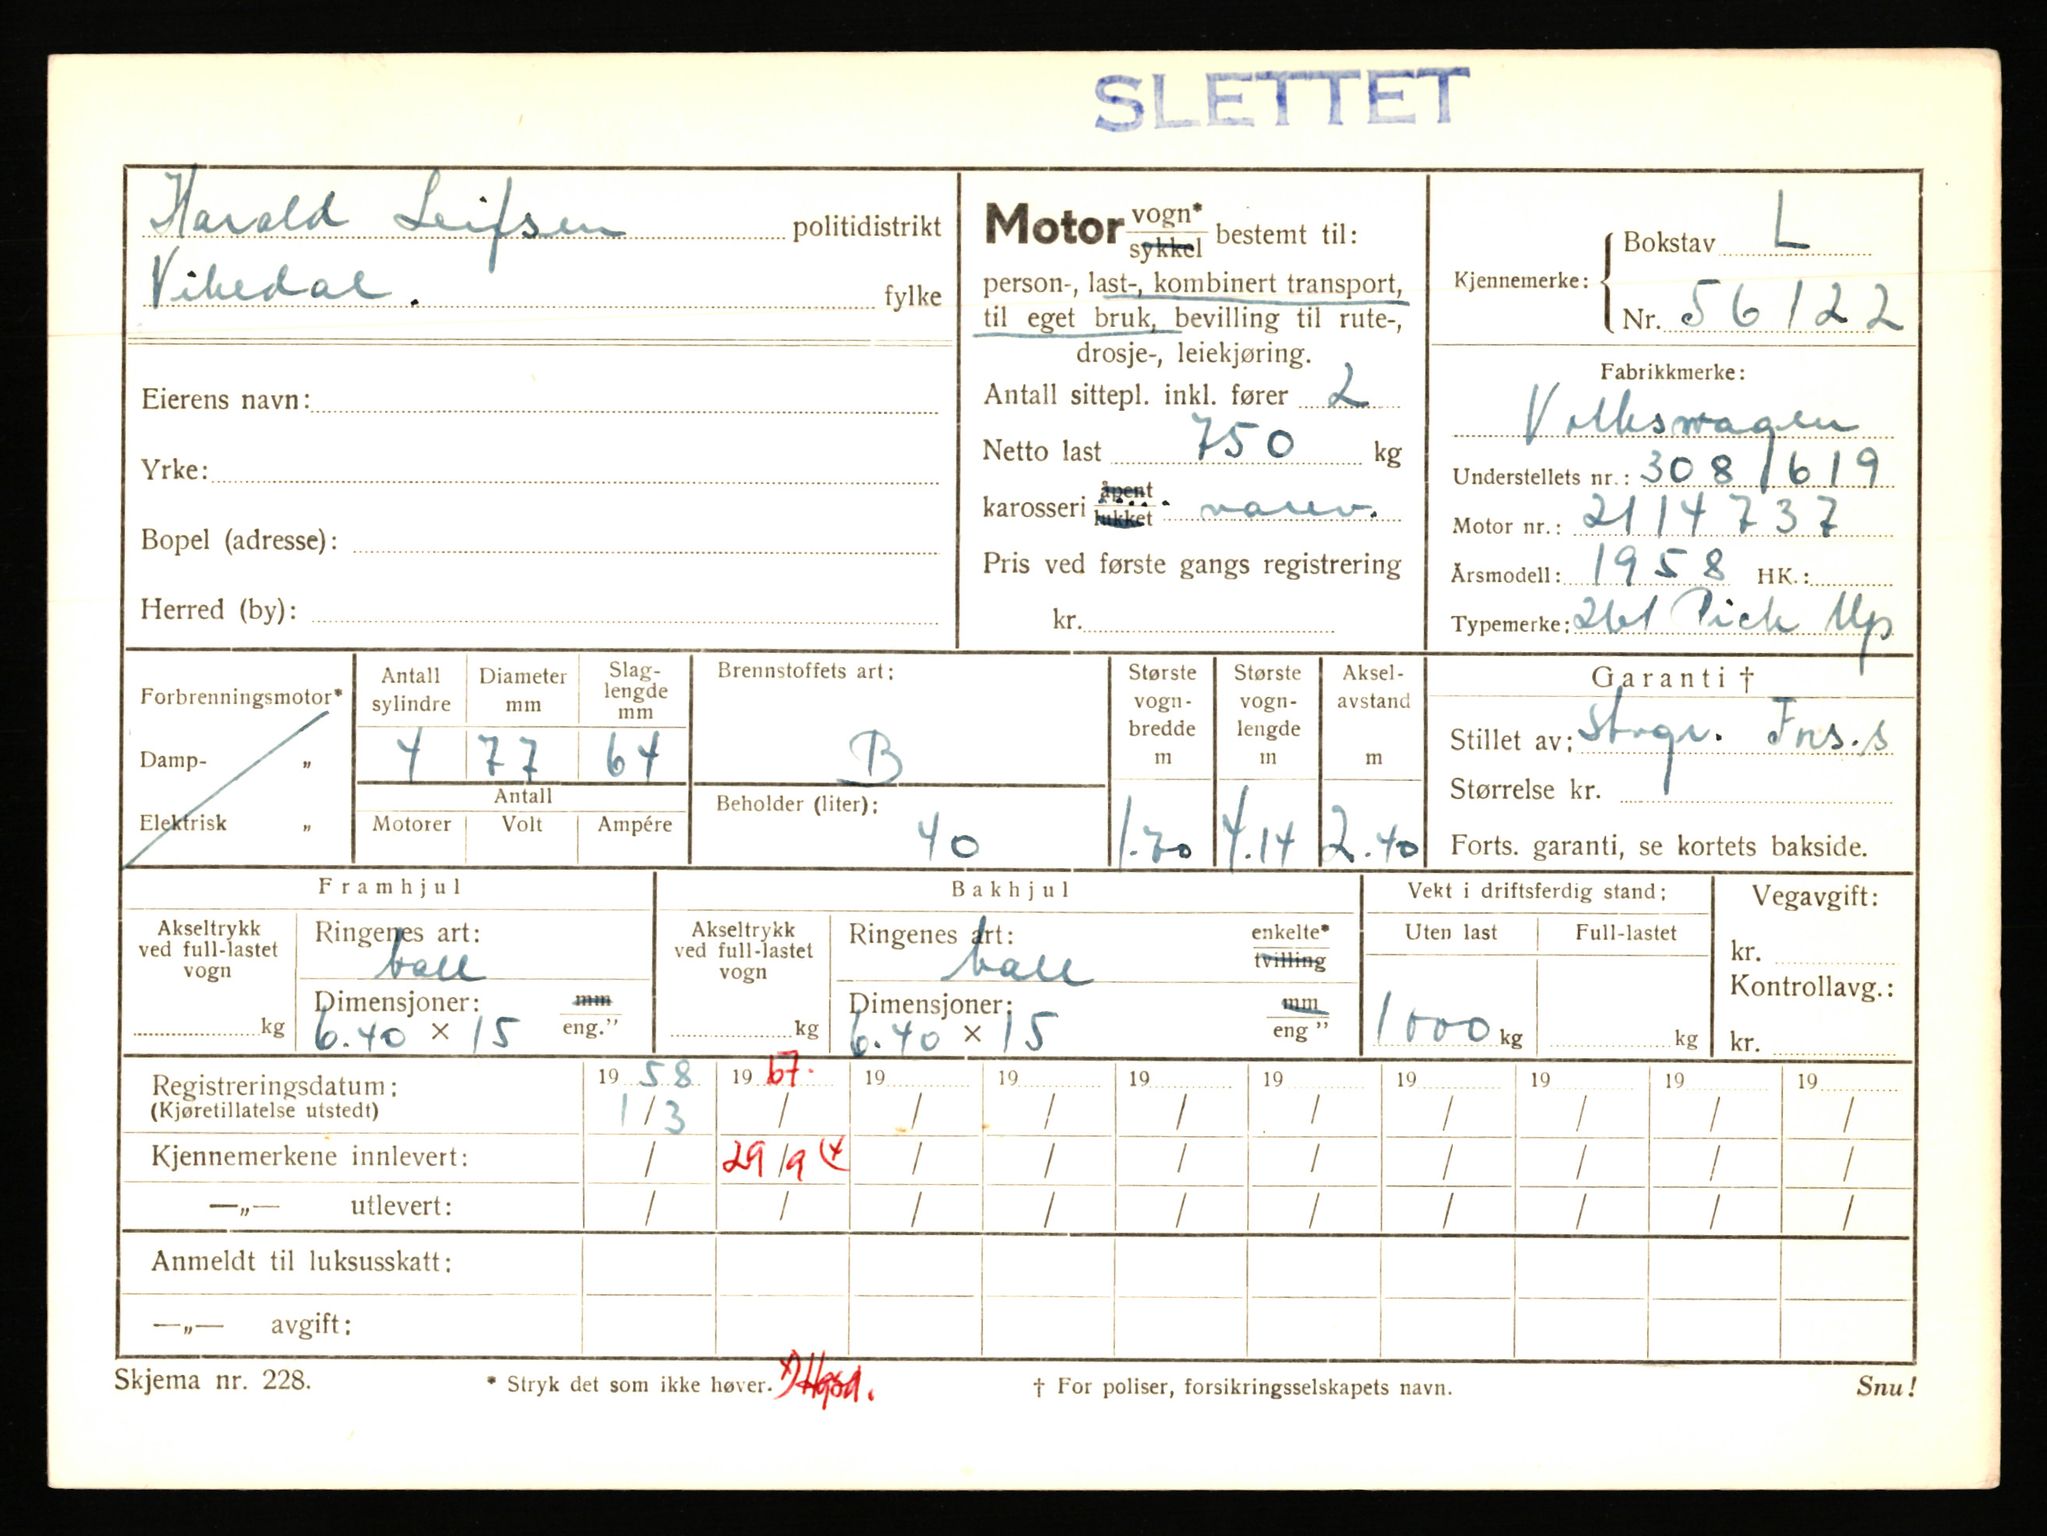 SLETTET
Harald Leifsen politidistrikt
Vikedal. fylke
Eierens navn:
Yrke:
Bopel (adresse):
Herred (by):
Motor vogn* sykkel bestemt til:
person-, last-, kombinert transport,
til eget bruk, bevilling til rute-,
drosje-, leiekjøring.
Antall sittepl. inkl. fører 2
Netto last 750 kg
karosseri åpent lukket varev.
Pris ved første gangs registrering
kr.
Kjennemerke: Bokstav L
Nr. 56122
Fabrikkmerke:
Volkswagen
Understellets nr.: 308/619
Motor nr.: 2114737
Årsmodell: 1958 HK.:
Typemerke: 261 Pick Up
Forbrenningsmotor*
Damp- „
Elektrisk „
Antall sylindre
4
Diameter mm
77
Slag-lengde mm
64
Antall
Motorer Volt Ampére
Brennstoffets art:
B
Beholder (liter):
40
Største vogn-bredde m
1.70
Største vogn-lengde m
4.14
Aksel-avstand m
2.40
Garanti †
Stillet av: Stvgr. Fors.s
Størrelse kr.
Forts. garanti, se kortets bakside.
Framhjul
Akseltrykk ved full-lastet vogn
kg
Ringenes art:
ball
Dimensjoner: mm
6.40 × 15 eng.”
Bakhjul
Akseltrykk ved full-lastet vogn
kg
Ringenes art: enkelte* tvilling
ball
Dimensjoner: mm
6.40 × 15 eng ”
Vekt i driftsferdig stand:
Uten last Full-lastet
1000 kg kg
Vegavgift:
kr.
Kontrollavg.:
kr.
Registreringsdatum: 19 58 19 67. 19 19 19 19 19 19 19 19
(Kjøretillatelse utstedt) 1/3 / / / / / / / / /
Kjennemerkene innlevert: / 29/9 (x / / / / / / / /
—„— utlevert: / / / / / / / / / /
Anmeldt til luksusskatt:
—„— avgift:
Skjema nr. 228. * Stryk det som ikke høver. x) † For poliser, forsikringsselskapets navn. Snu!